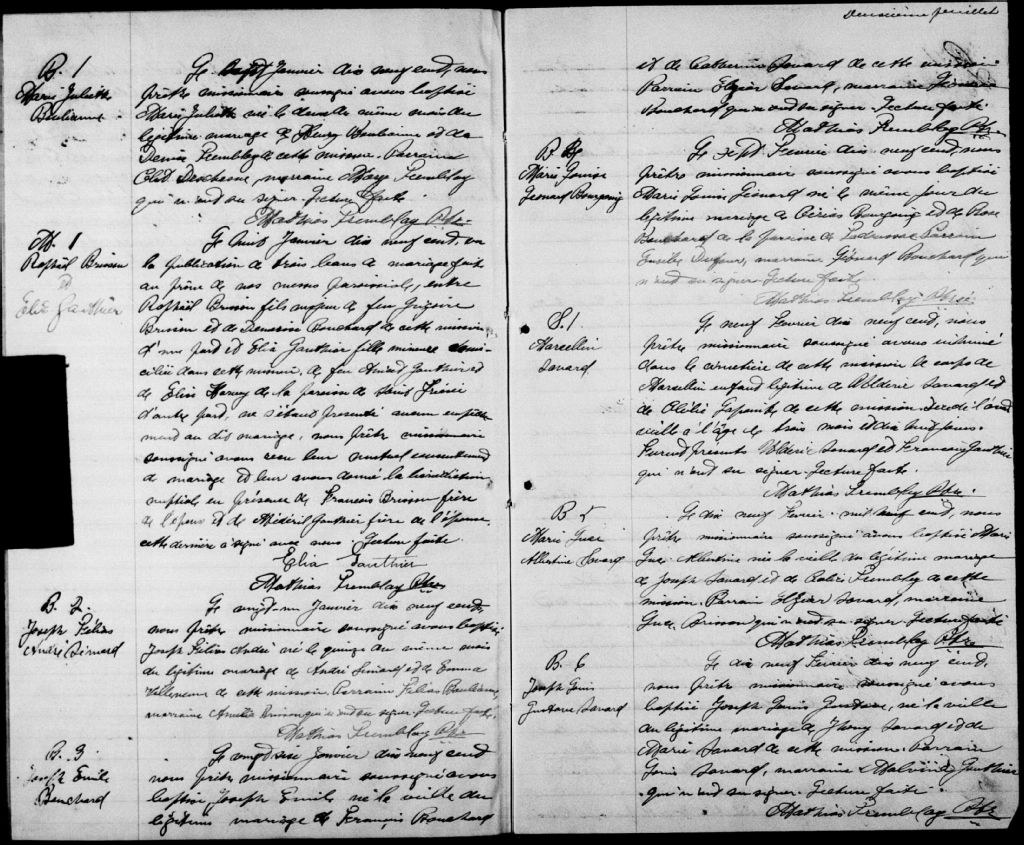 B. 1
Marie Juliette
Boulianne
Le sept Janvier dix neuf cent, nous
prêtre missionnaire soussigné avons baptisé
Marie Juliette née le deux du même mois du
légitime mariage de Henry Boulianne et de
Tremblay de cette mission. Parrain
Deschesne, marraine Mary Tremblay
qui n'ont su signer. Lecture faite.
Mathias Tremblay Ptre
M. 1
Raphaël Brisson
&
Elia Gauthier
Le huit Janvier dix neuf cent, vu
la publication de trois bans de mariage faite
au prône de nos messes paroissiales, entre
Raphaël Brisson fils majeur de feu Grégoire
Brisson et de Bouchard de cette mission
d'une part et Elia Gauthier fille mineure domi-
ciliée dans cette mission, de feu Gauthier et
de Elise Harvey de la paroisse de Saint
d'autre part, ne s'étant présenté aucun empêche
ment au dit mariage, nous prêtre missionnaire
soussigné avons reçu leur mutuel consentement
de mariage et leur avons donné la bénédiction
nuptiale en présence de François Brisson frère
de l'époux et de Médéril Gauthier frère de l'épouse
cette dernière a signé avec nous. Lecture faite.
Elia Gauthier
Mathias Tremblay Ptre
B. 2.
Joseph Félias
André Simard
Le vingt-un Janvier dix neuf cent,
nous prêtre missionnaire soussigné avons baptisé
Joseph Félias André né le quinze du même mois
du légitime mariage de André Simard et de Emma
Villeneuve de cette mission. Parrain Félias Boulianne,
marraine Brisson qui n'ont su signer. Lecture faite.
Mathias Tremblay Ptre
B. 3
Joseph Emile
Bouchard
Le vingt six Janvier dix neuf cent
nous prêtre missionnaire soussigné avons
baptisé Joseph Emile né la veille du
légitime mariage de François Bouchard
Deuxième feuillet
et de Catherine Savard de cette mission
Parrain Elzéar Savard, marraine
Bouchard qui n'ont su signer. Lecture faite.
Mathias Tremblay Ptre
B. 4
Marie Louise
Léonard Bourgoing
Le sept Février dix neuf cent, nous
prêtre missionnaire soussigné avons baptisé
Marie Louise Léonard né le même jour du
légitime mariage de Bourgoing et de Rose
Bouchard de la paroisse de Tadoussac. Parrain
Dufour, marraine Léonard Bouchard qui
n'ont su signer. Lecture faite.
Mathias Tremblay Ptre
S. 1
Marcellin
Savard
Le neuf Février dix neuf cent, nous
prêtre missionnaire soussigné avons inhumé
dans le cimetière de cette mission le corps de
Marcellin enfant légitime de Savard et
de Lapointe de cette mission décédé l'avant
veille à l'âge de trois mois et dix huit jours.
Furent présents Savard et François Gauthier
qui n'ont su signer. Lecture faite.
Mathias Tremblay Ptre
B 5
Marie Luce
Albertine Savard
Le dix neuf Février mil neuf cent, nous
prêtre missionnaire soussigné avons baptisé Marie
Luce Albertine née la veille du légitime mariage
de Joseph Savard et de Tremblay de cette
mission. Parrain Elzéar Savard, marraine
Luce Brisson qui n'ont su signer. Lecture faite
Mathias Tremblay Ptre
B. 6
Joseph Louis
Gustave Savard
Le dix neuf Février dix neuf cent,
nous prêtre missionnaire soussigné avons
baptisé Joseph Louis Gustave, né la veille
du légitime mariage de Savard et de
Marie Savard de cette mission. Parrain
Louis Savard, marraine Malvina Gauthier
qui n'ont su signer. Lecture faite.
Mathias Tremblay Ptre